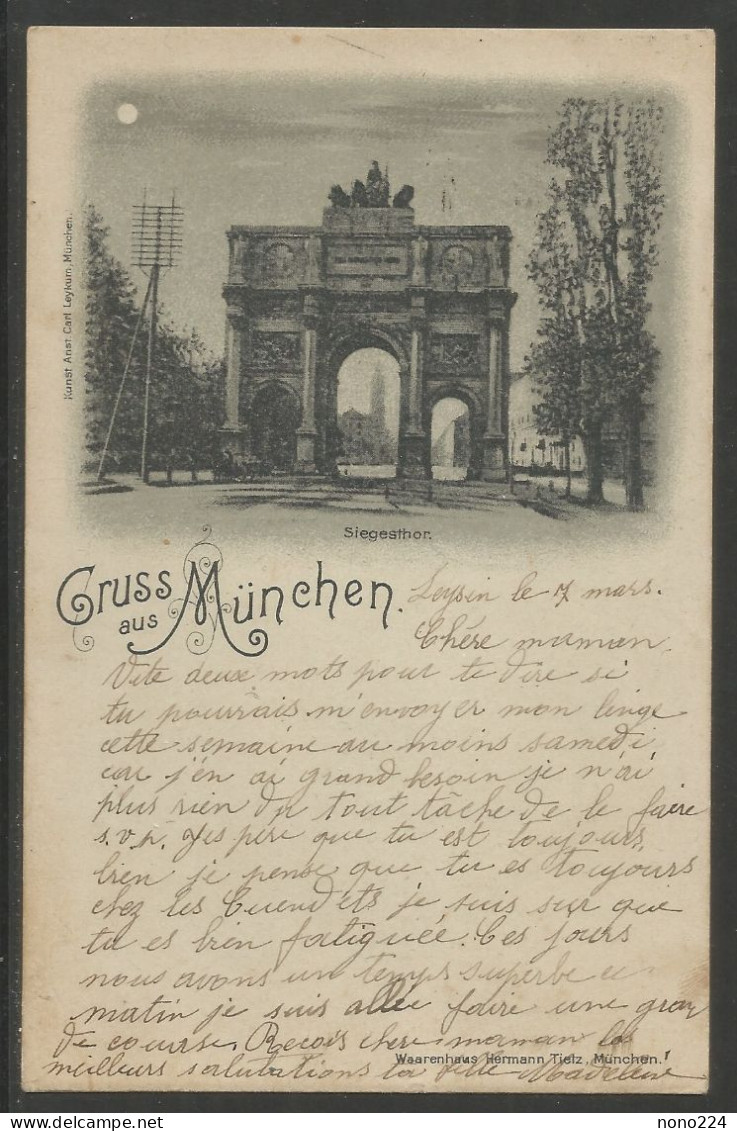 Kunst Anst. Carl Leykum, München.
Siegesthor.
Gruss aus München.
Leysin le 7 mars.
Chére maman.
Vite deux mots pour te dire si
tu pourrais m'envoyer mon linge
cette semaine au moins samedi
car j'en ai grand besoin je n'ai
plus rien du tout tâche de le faire
s.v.p. J'espére que tu est toujours
bien je pense que tu es toujours
chez les Cuendets je suis sur que
tu es bien fatiguée. Ces jours
nous avons un temps superbe ce
matin je suis allée faire une gran
de course. Reçois chere maman les
meilleurs salutations ta fille Madeleine
Waarenhaus Hermann Tietz, München.
nono224